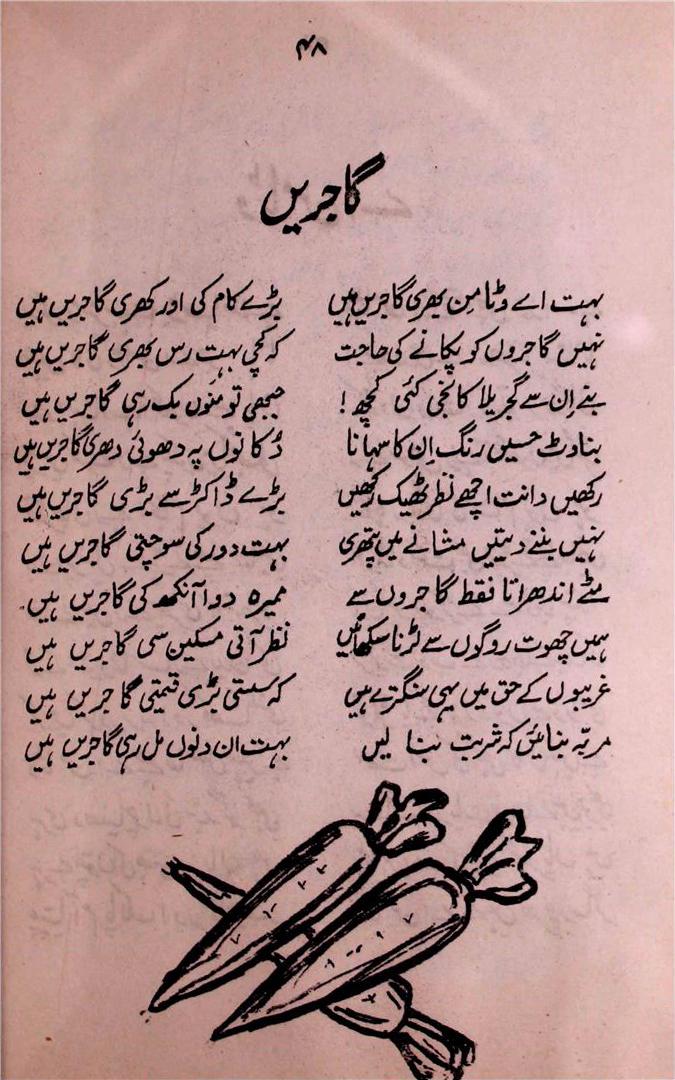 ۴۸
گاجریں
بہت اے وٹامن بھری گاجریں ہیں بڑے کام کی اور کھری گاجریں ہیں
نہیں گاجروں کو پکانے کی حاجت کہ کچی بہت رس بھری گاجریں ہیں
بنے اِن سے گجریلا کانجی کئی کچھ! جبھی تو منوں بک رہی گاجریں ہیں
بناوٹ حسیں رنگ اِن کا سہانا دُکانوں پہ دھوئی دھری گاجریں ہیں
رکھیں دانت اچھے نظر ٹھیک رکھیں بڑے ڈاکٹر سے بڑی گاجریں ہیں
نہیں بننے دیتیں مثانے میں پتھری بہت دور کی سوچتی گاجریں ہیں
مٹے اندھراتا فقط گاجروں سے ممیرہ دوا آنکھ کی گاجریں ہیں
ہمیں چھوت روگوں سے لڑنا سکھائیں نظر آتی مسکین سی گاجریں ہیں
غریبوں کے حق میں یہی سنگترے ہیں کہ سستی بڑی قیمتی گاجریں ہیں
مربّہ بنائیں کہ شربت بنا لیں بہت ان دنوں مل رہی گاجریں ہیں